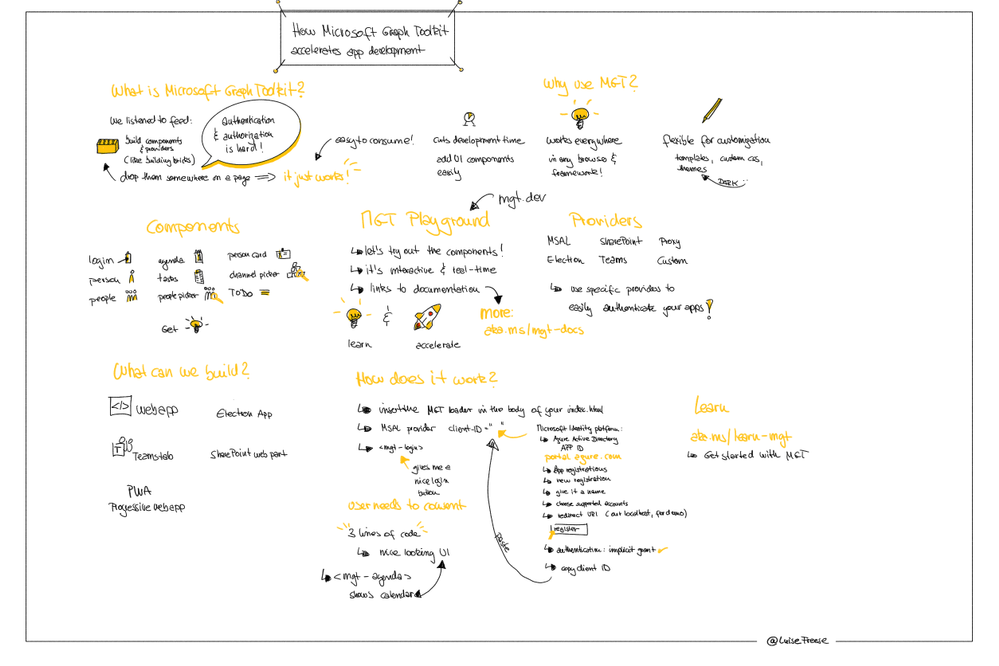 How Microsoft Graph Toolkit
accelerates app development
What is Microsoft Graph Toolkit?
we listened to feed:
build components
& providers
(like building bricks)
authentication
& authorization
is hard!
drop them somewhere on a page => it just works!
easy to consume!
Why use MGT?
Cuts development time
add UI components
easily
works everywhere
in any browse &
framework!
flexible for customization
templates, custom css,
themes
DARK
mgt.dev
Components
login
person
people
agenda
tasks
people picker
person card
channel picker
ToDo
Get
MGT Playground
let's try out the components!
it's interactive & real-time
links to documentation
learn
&
accelerate
more:
aka.ms/mgt-docs
Providers
MSAL SharePoint Proxy
Election Teams Custom
use specific providers to
easily authenticate your apps!
What can we build?
</> web app
Election App
Teams tab
SharePoint web part
PWA
Progressive web app
How does it work?
insert the MGT loader in the body of your index.html
MSAL provider client-ID = " "
<mgt-login>
gives me a
nice login
button
User needs to consent
3 lines of code
nice looking UI
<mgt-agenda>
shows calendar
Microsoft Identity platform:
Azure Active Directory
APP ID
portal.azure.com
App registrations
new registration
give it a name
choose supported accounts
redirect URI (our localhost, for demo)
register
authentication: implicit grant
copy client ID
paste
Learn
aka.ms/learn-mgt
Get started with MGT
@LuiseFreese